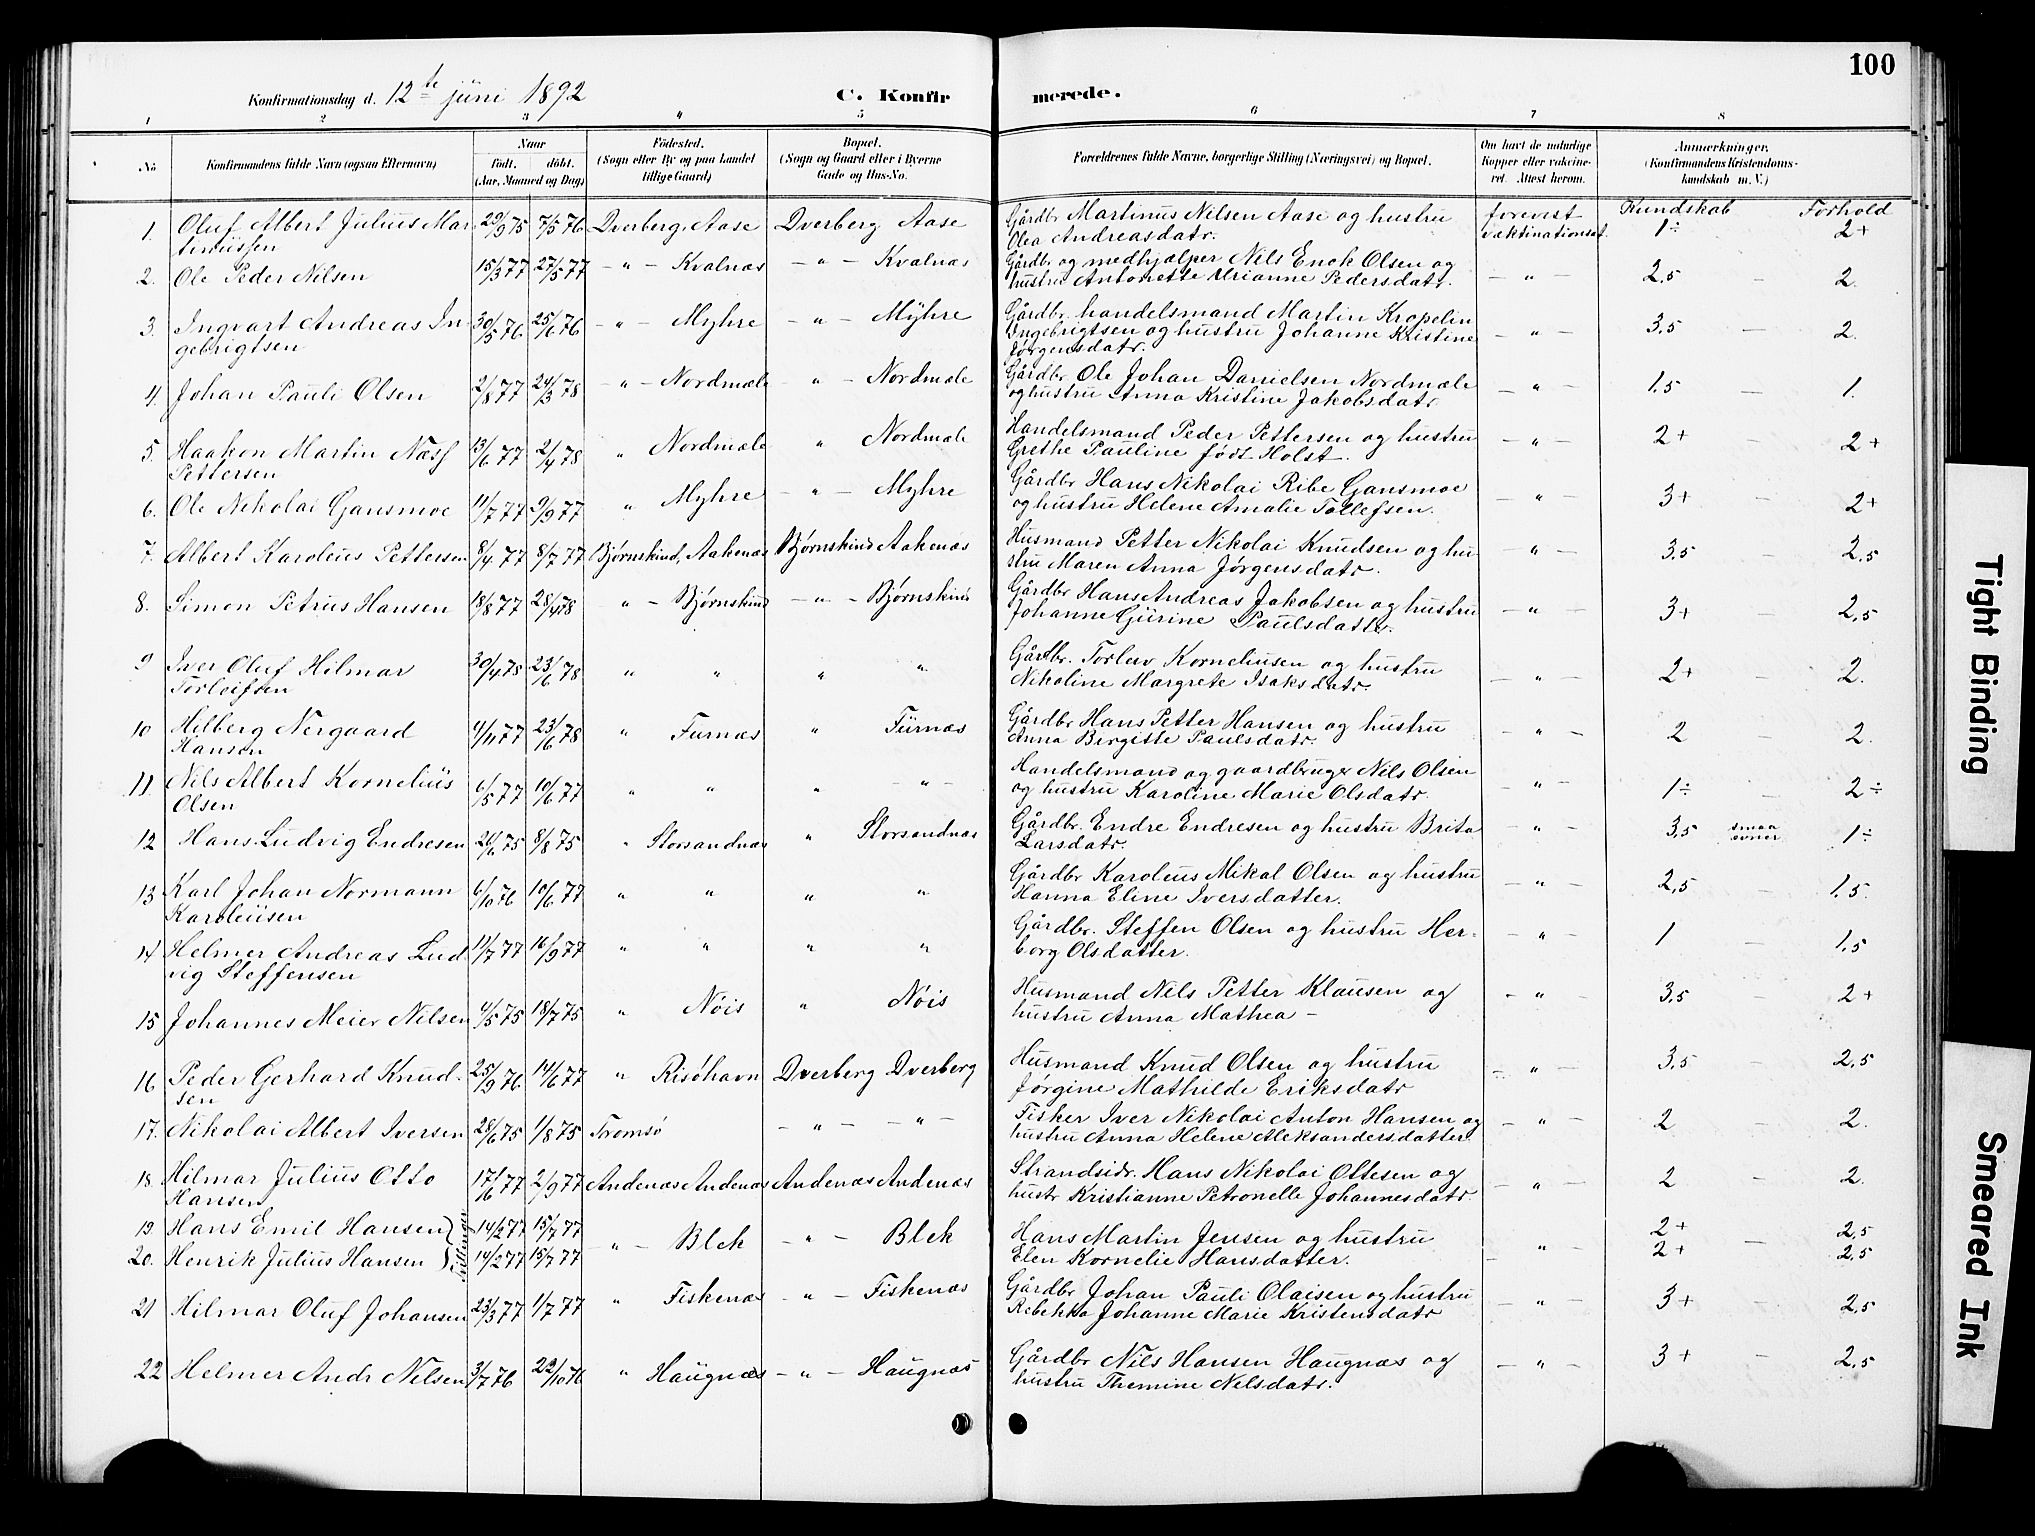 100
Konfirmationsdag d. 12te juni 1892 C. Konfir merede.
1 2 3 4 5 6 7 8
No Konfirmandens fulde Navn (ogsaa Efternavn) Naar født. døbt. (Aar, Maaned og Dag) Fødested. (Sogn eller By og paa Landet tillige Gaard) Bopæl. (Sogn og Gaard eller i Byerne Gade og Hus-No. Forældrenes fulde Navne, borgerlige Stilling (Næringsvei) og Bopæl. Om havt de naturlige Kopper eller vakcineret. Attest herom. Anmærkninger. (Konfirmandens Kristendomskundskab m. V.)
Kundskab Forhold
1. Oluf Albert Julius Mar 29/9 75 7/5 76 Dverberg, Aase Dverberg Aase Gårdbr Martinus Nilsen Aase og hustru forevist 1÷ — 2+
tinussen Olea Andreasdatr. vaktinationsat.
2. Ole Peder Nilsen 15/3 77 27/5 77 — " — Kvalnæs — " — Kvalnæs Gårdbr og medhjælper Nils Enok Olsen og — " — 2,5 — 2.
hustru Antonette Urianne Pedersdatr.
3. Ingvart Andreas In- 30/5 76 25/6 76 — " — Myhre — " — Myhre Gårdbr. handelsmand Martin Kropelin — " — 3,5 — 2.
gebrigtsen Ingebrigtsen og hustru Johanne Kristine
Jørgensdatr.
4. Johan Pauli Olsen 2/8 77 24/3 78 " — Nordmæle " — Nordmæle Gårdbr Ole Johan Danielsen Nordmæle — " — 1,5 — 1.
og hustru Anna Kristine Jakobsdatr
5. Haakon Martin Næss 13/6 77 2/4 78 " Nordmæle " Nordmæle Handelsmand Peder Pettersen og hustru — " — 2+ — 2+
Pettersen Grethe Pauline født Holst.
6. Ole Nikolai Gansmoe 11/7 77 9/9 77 " Myhre — " — Myhre Gårdbr Hans Nikolai Ribe Gansmoe — " — 3+ — 2+
og hustru Helene Amalie Tollefsen.
7. Albert Karoleus Pettersen 8/4 77 8/7 77 Bjørnskind, Aakenæs Bjørnskind Aakenæs Husmand Petter Nikolai Knudsen og hu " — 3,5 — 2,5
stru Maren Anna Jørgensdatr.
8. Simon Petrus Hansen 18/8 77 28/4 78 " — Bjørnskind — " — Bjørnskind Gårdbr Hans Andreas Jakobsen og hustru — " — 3+ — 2,5
Johanne Gurine Paulsdatter.
9 Iver Oluf Hilmar 30/4 78 23/6 78 " " " " Gårdbr. Torleiv Korneliusen og hustru — " — 2+ — 2.
Torleifsen Nikoline Margrete Isaksdatr.
10 Hilberg Nergaard 4/11 77 23/6 78 " Furnæs " Furnæs Gårdbr Hans Petter Hansen og hustru — " — 2 — 2.
Hansen Anna Birgitte Paulsdatr.
11. Nils Albert Kornelius 6/5 77 10/6 77 " " " — " — Handelsmand og gaardbruger Nils Olsen — " — 1÷ — 2÷
Olsen og hustru Karoline Marie Olsdatr.
12 Hans Ludvig Endresen 8/8 75 " Storsandnæs " Storsandnæs Gårdbr. Endre Endresen og hustru Brita — " — 3,5 smaa evner 1÷
Larsdatr.
13 Karl Johan Normann 6/10 76 10/6 77 " " " " Gårdbr Karoleus Mikal Olsen og hustru — " — 2,5 — 1,5.
Karoleusen Hanna Eline Iversdatter.
14 Helmer Andreas Lud 11/7 77 16/9 77 " " " " Gårdbr. Steffen Olsen og hustru Her- — " — 1 — 1,5
vig Steffensen borg Olsdatter.
15 Johannes Meier Nilsen 4/5 75 18/7 75 " Nöis " Nöis Husmand Nels Petter Klausen og — " — 3,5 — 2+
hustru Anna Mathea —
16 Peder Gerhard Knud- 25/9 76 14/6 77 " Risøhavn Dverberg Dverberg Husmand Knud Olsen og hustru — " — 3,5 — 2,5
sen Jørgine Mathilde Eriksdatr
17. Nikolai Albert Iversen 28/6 75 1/8 75 Tromsø — " — — " — Fisker Iver Nikolai Anton Hansen og — " — 2 — 2.
hustru Anna Helene Aleksandersdatter.
18. Hilmar Julius Otto 17/6 77 2/9 77 Andenæs Andenæs Andenæs Andenæs Strandsidr. Hans Nikolai Ottesen og — " — 2 — 2.
Hansen hustr Kristianne Petronelle Johannesdatr
19. Hans Emil Hansen 14/2 77 15/7 77 " — Blek — " — Blek Hans Martin Jensen og hustru " 2+ — 2,5
20. Henrik Julius Hansen 14/2 77 15/7 77 Elen Kornelie Hansdatter. 2+ 2,5
21 Hilmar Oluf Johansen 23/3 77 1/7 77 " Fiskenæs — " — Fiskenæs Gårdbr Johan Pauli Olaisen og hustru — " — 3+ — 2,5
Rebekka Johanne Marie Kristensdatr
22 Helmer Andr Nilsen 3/7 76 22/10 76 " Haugnæs — " — Haugnæs Gårdbr Nils Hansen Haugnæs og — " — 3+ — 2,5
hustru Themine Nelsdatr.
Tight Binding
Smeared Ink